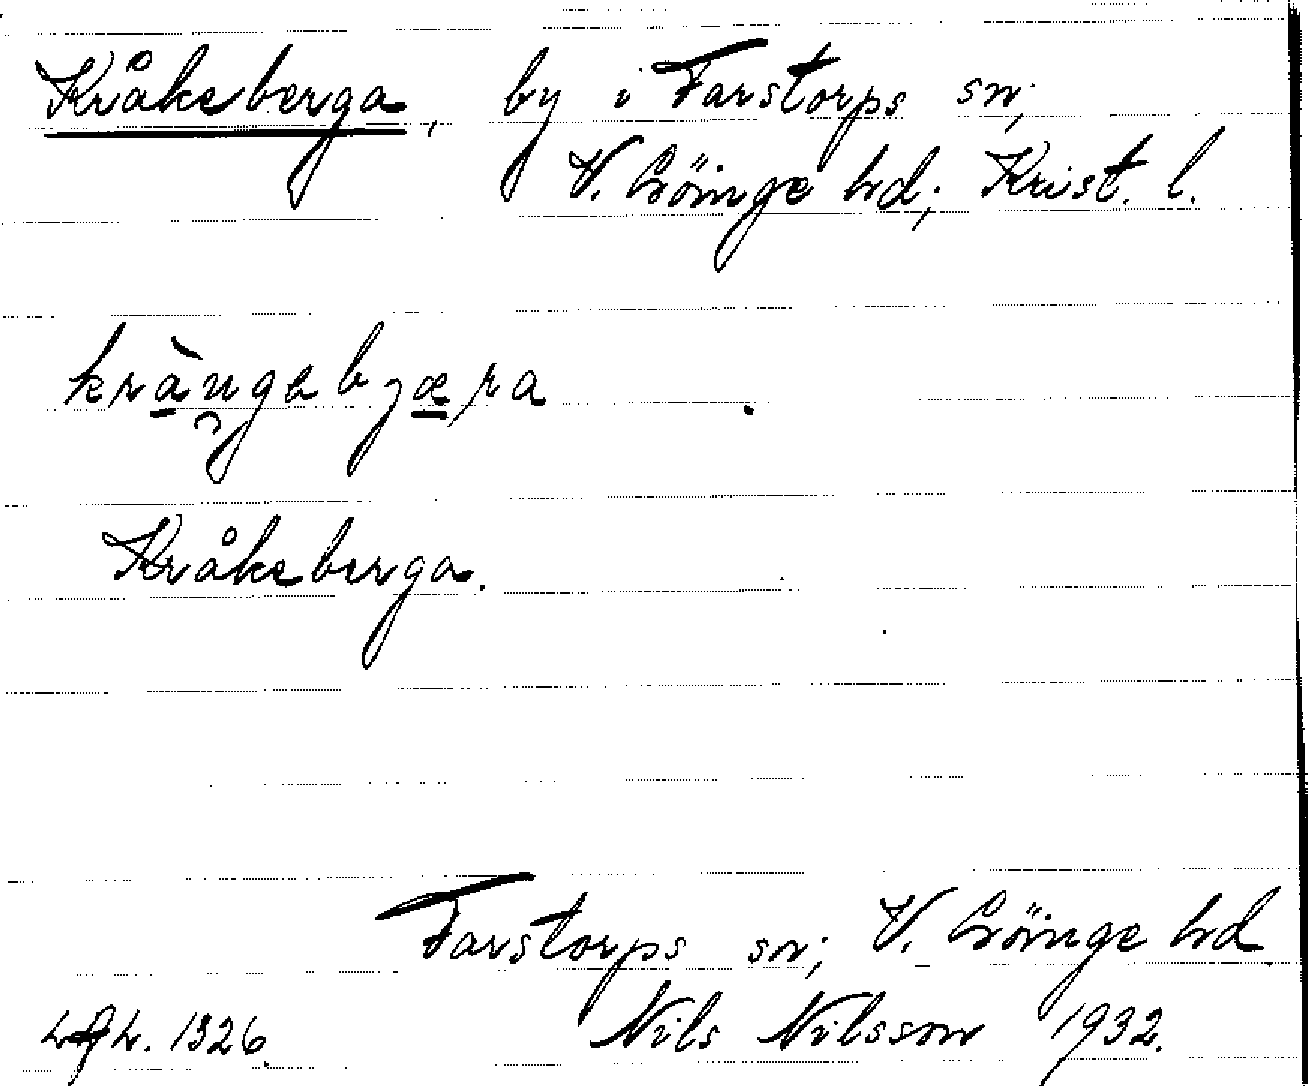 Kråkeberga, by i Farstorps sn,
V. Göinge hd; Krist. l.
Kråkeberga.
Farstorps sn; V. Göinge hd
1326. Nils Nilsson 1932.